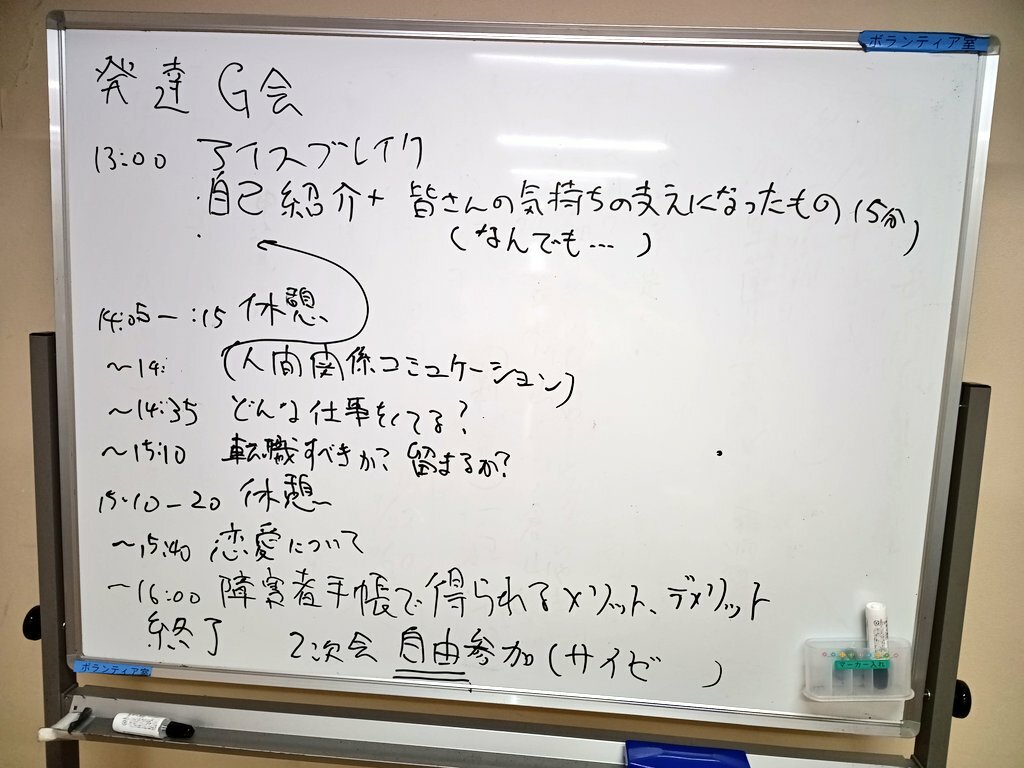 ボランティア室
発達G会
13:00 アイスブレイク
・自己紹介+ 皆さんの気持ちの支えになったもの 15分
(なんでも…)
・
14:05ー:15 休憩
～14: (人間関係コミュケーション)
～14:35 どんな仕事をしてる?
～15:10 転職すべきか? 留まるか?
15:10ー20 休憩
～15:40 恋愛について
～16:00 障害者手帳で得られるメリット、デメリット
終了 2次会 自由参加(サイゼ )
ボランティア室
マーカー入れ